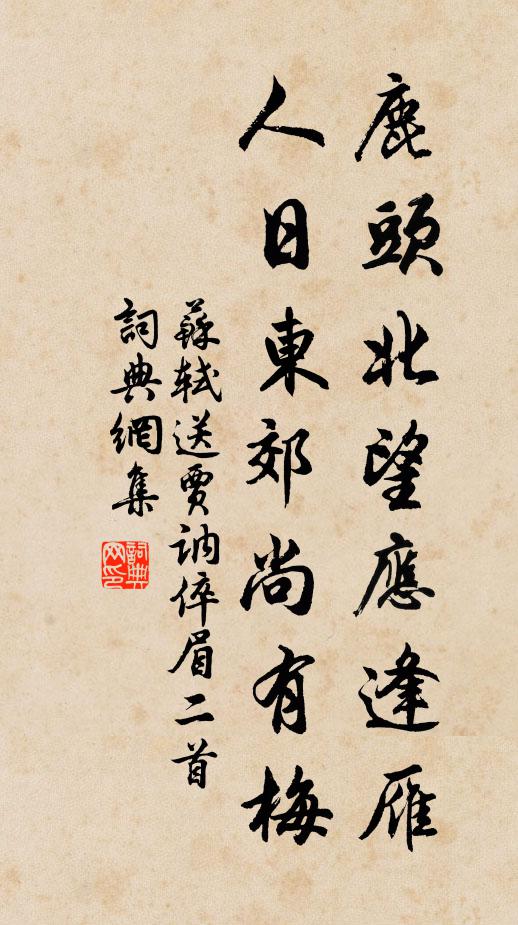 鹿頭北望應逢雁
人日東郊尚有梅
蘇軾送賈訥倅眉二首
詞典網集
詞典网印